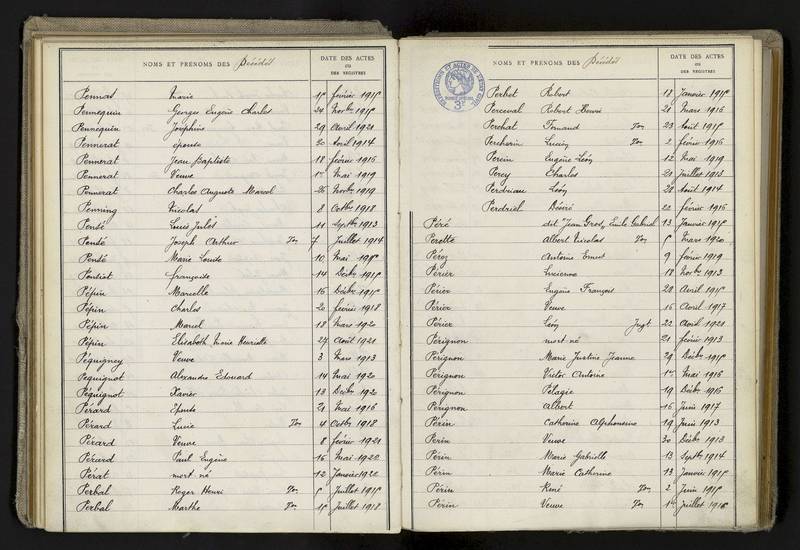 NOMS ET PRÉNOMS DES Décédés DATE DES ACTES OU DES REGISTRES
Pennas Marie février
Pennequin Georges Eugène Charles 24 Novbre
Pennequin Joséphine 29 Avril 1921
Pennerat épouse 30 Avril 1914
Pennerat Jean Baptiste 18 février 1916
Pennerat Veuve 1er Mai 1919
Pennerat Charles Auguste Marcel 26 Novbre 1919
Penning Nicolas 8 Octbre 1918
Pensé Louis Jules 11 Septbre 1913
Pensé Joseph Arthur Jon 7 Juillet 1914
Pensé Marie Louise 10 Mai
Pontiet françoise 14 Décbre
Pépin Marcelle 16 Décbre
Pépin Charles 2 février 1918
Pépin Marcel 18 Mars 1920
Pépin Elisabeth Marie Henriette 27 Août 1921
Péquigney Veuve 3 Mars 1913
Pequignot Alexandre Edouard 14 Mai 1920
Péquignot Xavier 13 Décbre 1920
Pérard Epouse 21 Mai 1916
Pérard Lucie Jon 4 Octbre 1918
Pérard Veuve 8 février 1921
Pérard Paul Eugène 16 Mai 1920
Pérat mort né 12 Janvier 1920
Perbal Roger Henri Jon Juillet
Perbal Marthe Jon Juillet 1918
NOMS ET PRÉNOMS DES Décédés DATE DES ACTES OU DES REGISTRES
Perbet Robert 18 Janvier
Perceval Robert Henri 28 Mars 1916
Perchat Fernand Jon 23 Août
Percherin Lucien Jon 2 février 1916
Perein Eugène Léon 12 Mai 1919
Percy Charles 21 Juillet 1913
Perduau Léon 28 Août 1914
Perdriel Désiré 22 février 1916
Péré dit Jean Gros, Emile Gabriel 13 Janvier
Perette Albert Nicolas Jon Mars 1920
Péroz Antoine Ernest 9 février 1919
Périer Lucienne 18 Novbre 1913
Périer Eugène François 28 Avril
Périer Veuve 16 Avril 1917
Périer Léon Jugt 22 Avril 1921
Pérignon mort né 21 février 1913
Pérignon Marie Justine Jeanne 29 Décbre
Pérignon Victor Antoine 1er Mai 1916
Pérignon Pélagie 19 Décbre 1916
Pérignon Albert 16 Juin 1917
Périn Catherine Alphonsine 19 Juin 1913
Perin Veuve 30 Décbre 1913
Perin Marie Gabrielle 13 Septbre 1914
Périn Marie Catherine 13 Janvier
Périn René Jon 2 Juin
Périn Veuve Jon 14 Juillet 1916